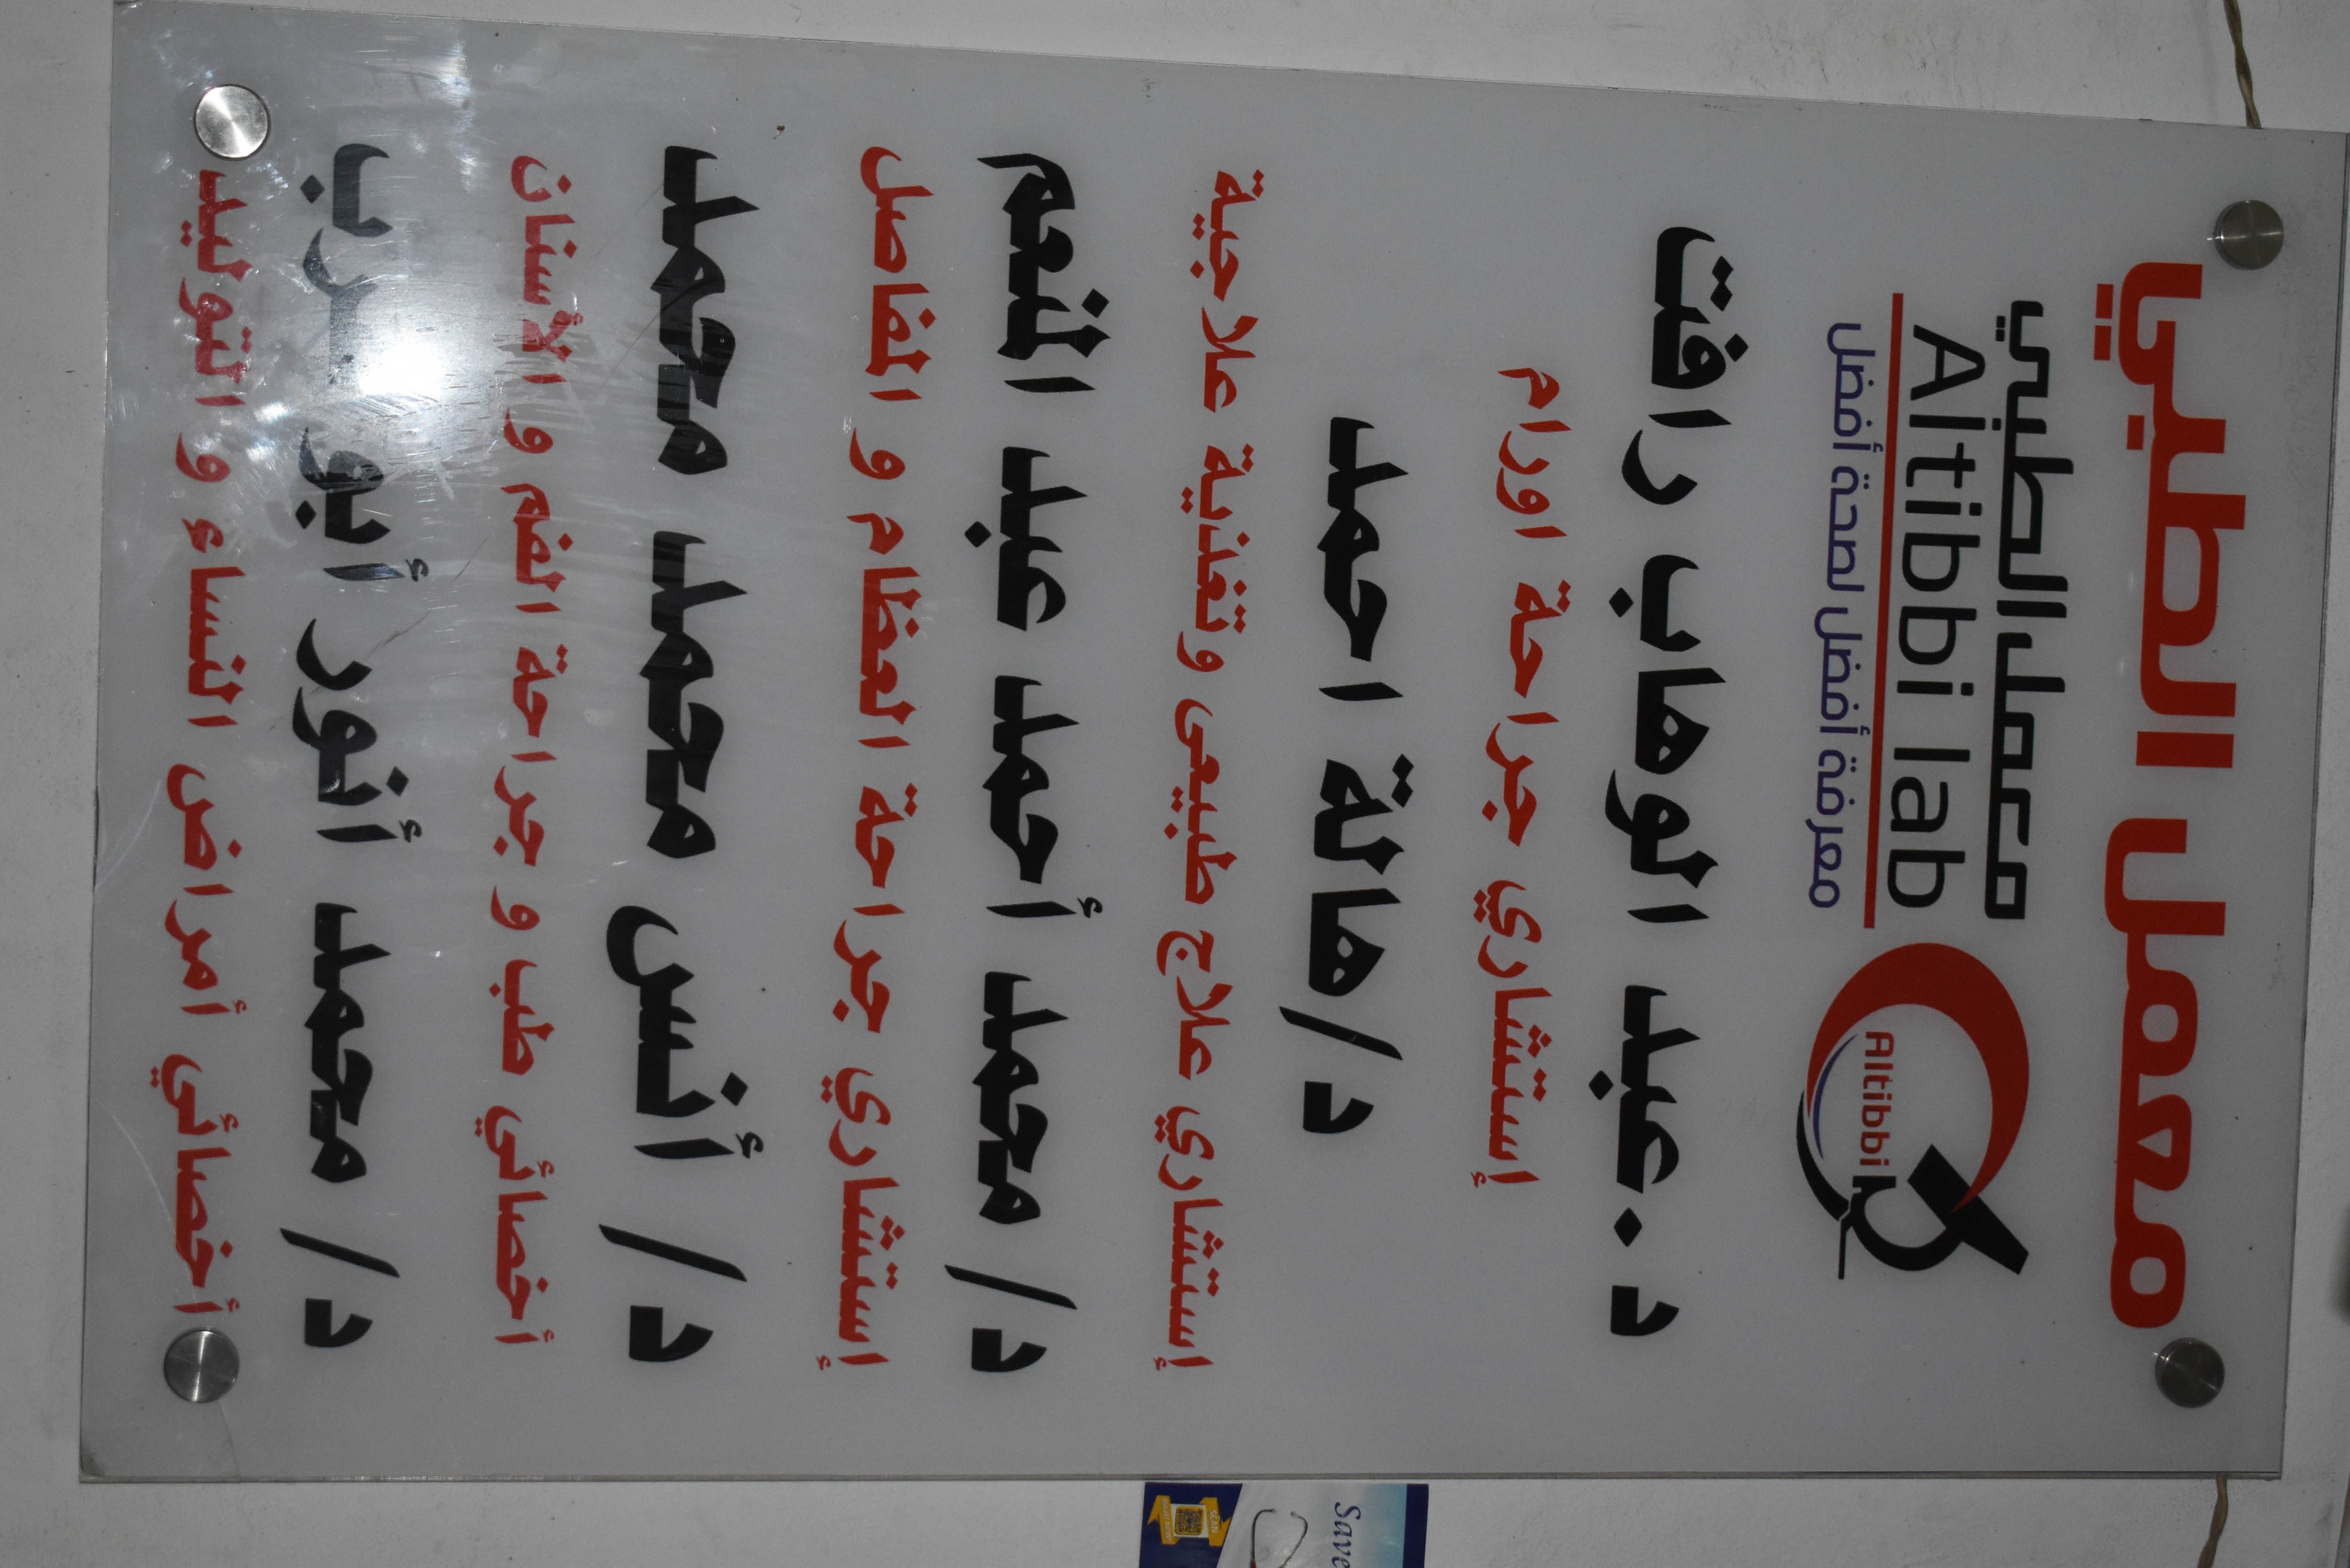 معمل الطبي
معمل الطبي
Altibbi lab
معرفة أفضل لصحة أفضل
Altibbi
د. عبد الوهاب رافت
إستشاري جراحة اورام
د/هالة احمد
إستشاري علاج طبيعى وتغذية علاجية
د/ محمد أحمد عبد المنعم
إستشاري جراحة العظام و المفاصل
د/ أنس محمد محمد
أخصائي طب و جراحة الفم و الأسنان
د/ محمد أنور أبو
أخصائي أمراض النساء و التوليد
Save
SCAN